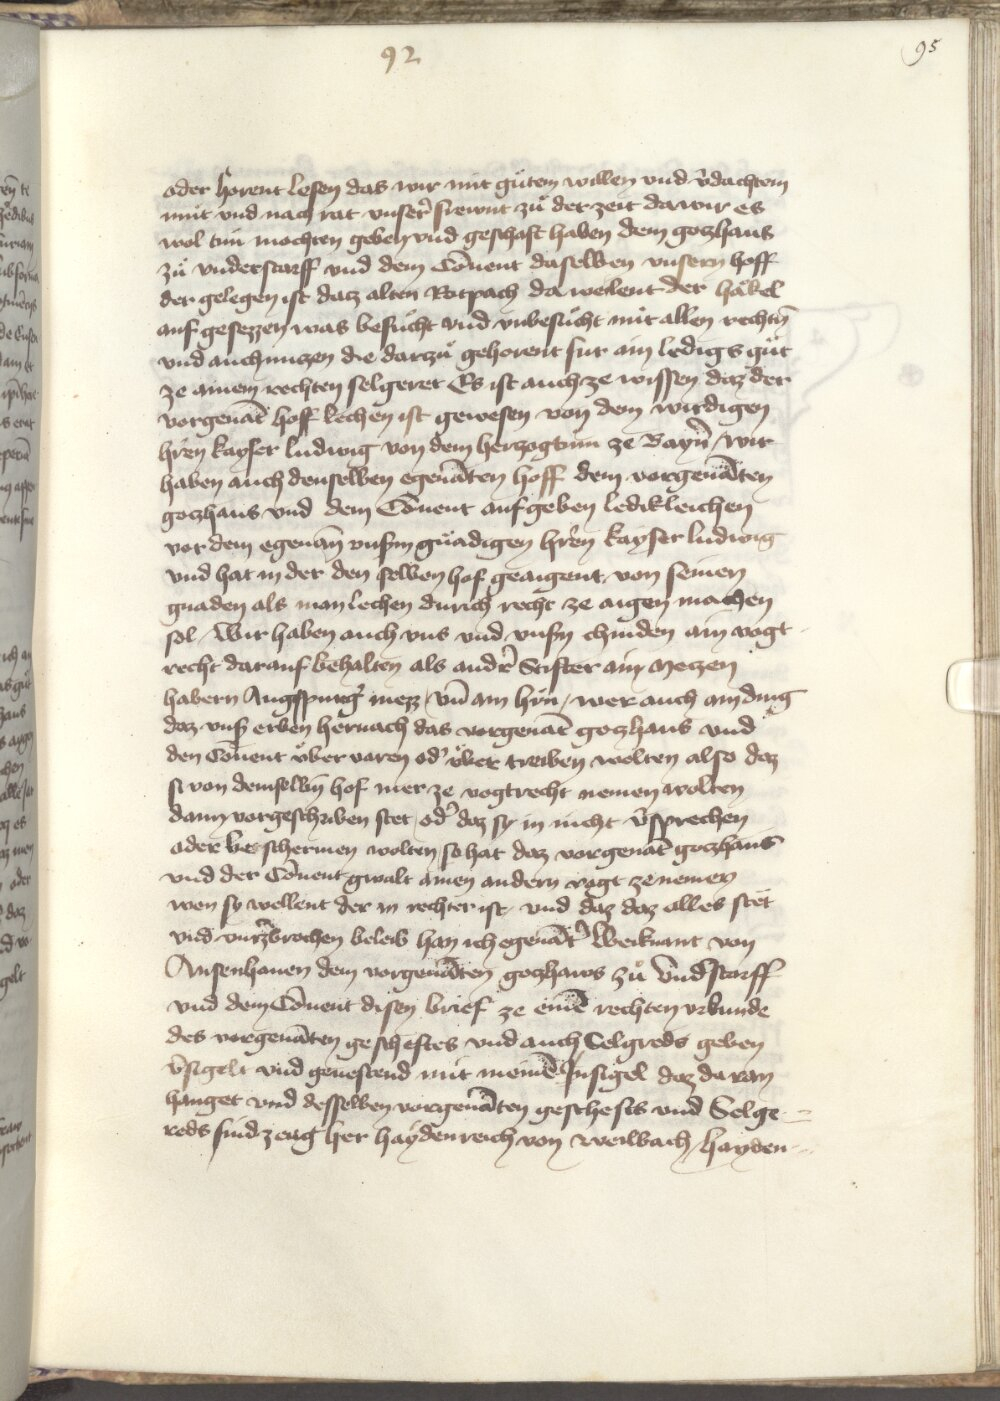 92
95
oder horent lesen das wir mit gůtem willen vnd v̄dachtem
můt vnd nach rat vnser̄ frewnt zů der zeit da wir es
wol tun mochten geben vnd geschaft haben dem goczhaus
zů vnderstorff vnd dem Cōuent daselben vnsern hoff
der gelegen ist dacz alten Rotpach da weilent der häkel
auf gesezzen was besůcht vnd vnbesůcht mit allen rechtn̄
vnd auch nuczen die darzů gehorent fur ain ledigs gůt
ze ainem rechten selgeret Es ist auch ze wissen daz der
vorgenāt hoff lechen ist gewesen von dem wirdigen
hr̄en kayser ludwig von dem herzogtum ze Bayrn̄ / wir
haben auch denselben egenāten hoff dem vorgenāten
goczhaus vnd dem Cōuent aufgeben ledikleichen
vor dem egenan̄ vnsm̄ gnädigen hr̄en kayser ludwig
vnd hat in der den selben hof geaigent von seinen
gnaden als man lechen durich recht ze aigen machen
sol / Wir haben auch vns vnd vnsn̄ chinden ain vogt
recht darauf behalten als andr̄ Stifter ain Meczen
habern Augspurg̓ mezz / vn̄ ain hůn / wer auch ain ding
daz vns̄ erben hernach das vorgenāt goczhaus vnd
den Cōuent v̈ber varen od̓ v̈ber treiben wolten also daz
si von demselbn̄ hof mer ze vogtrecht nemen wolten
dann vorgeschriben stet / od̓ daz sy in nicht v̄sprechen
oder beschermen wolten so hat daz vorgenāt goczhaus
vnd der Cōuent gwalt ainen andern vogt ze nemen
wen sy wellent der in rechter ist / vnd daz daz alles stët
vnd vnzebrochen beleib han ich egenāt̓ Weiknant von
Ausenhauen dem vorgenāten goczhaws zů vnd̓storff
vnd dem Cōuent disen brief ze einē rechten vrkunde
des vorgenāten gescheftes vnd auch Selgreds geben
v̄sigelt vnd geuestend mit meinē Jnsigel daz daran
hanget vnd desselben vorgenāten geschefts vnd Selge-
reds sind zeug her haydenreich von weilbach / hayden-